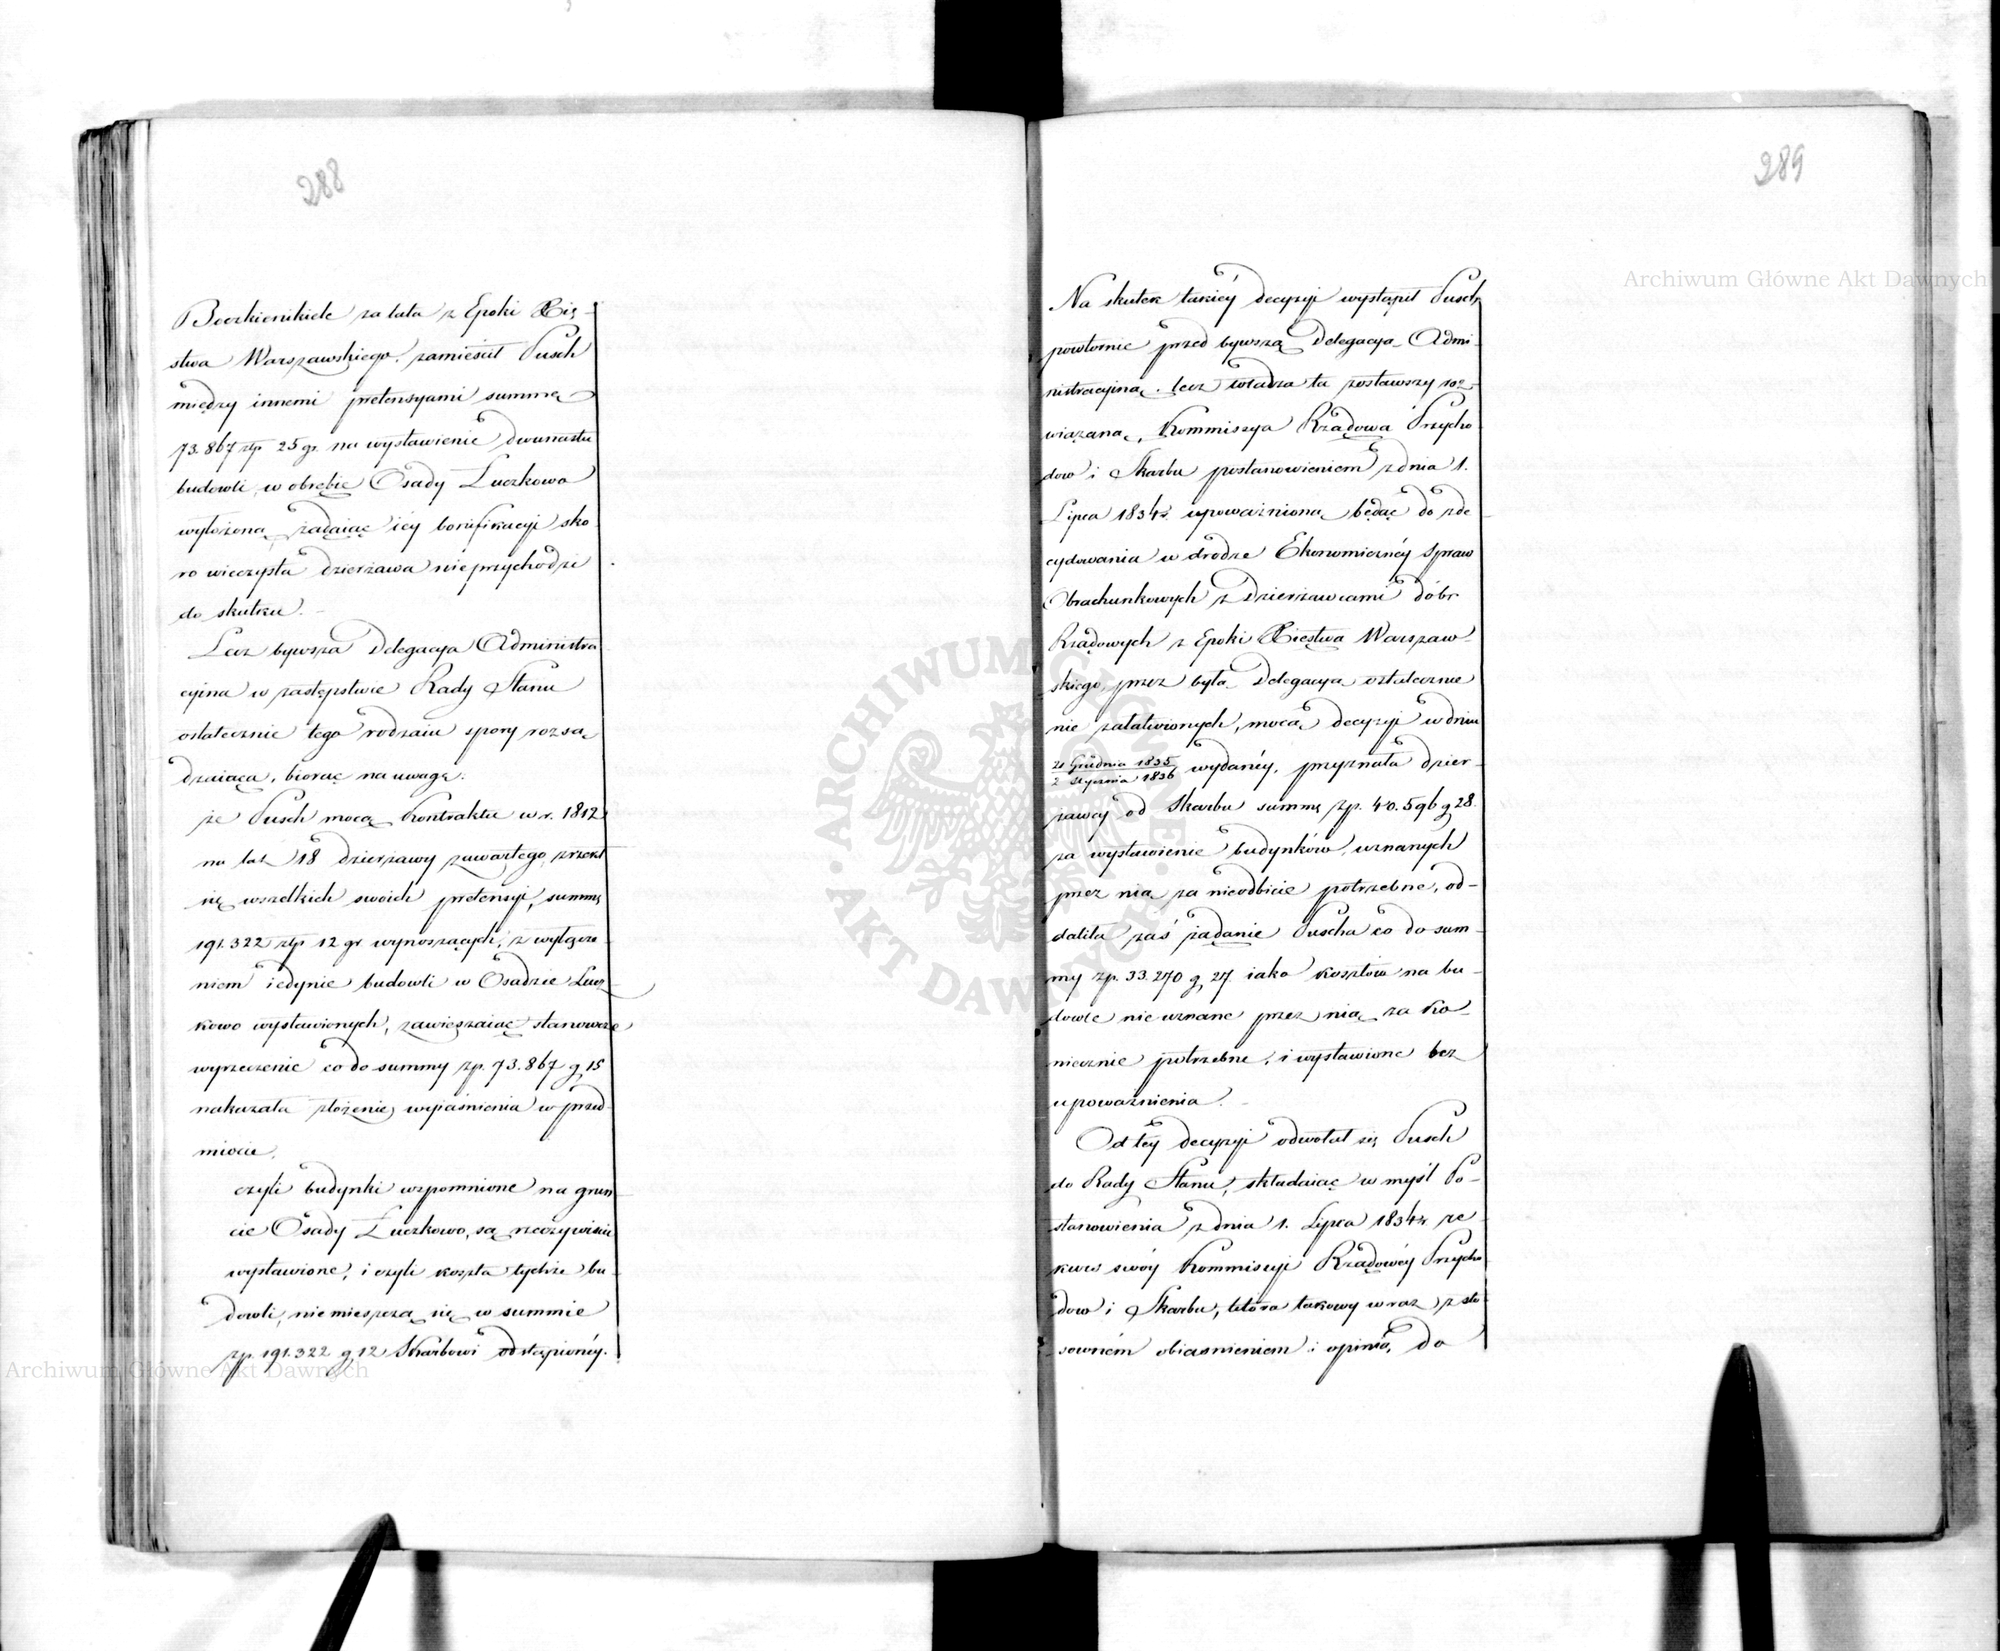 288
Boczkienikiele za lata z Epoki Xię-
stwa Warszawskiego, zamieścił Pusch
między innemi pretensyami summę
73.867 złp 25 gr. na wystawienie dwunastu
budowli w obrębie Osady Łuczkowo
wyłożoną, żądaiąc iéy bonifikacyi sko
ro wieczysta dzierżawa nieprzychodzi
do skutku. -
Lecz bywsza Delegacya Administra
cyina w zastępstwie Rady Stanu
ostatecznie tego rodzaiu spory rozsą
dzaiąca, biorąc na uwagę:
że Pusch mocą Kontraktu w r. 1812
na lat 18 dzierżawy zawartego, zrzekł
się wszelkich swoich pretensyi, summę
191.322 złp 12 gr wynoszących, z wyłącze
niem iedynie budowli w Osadzie Łucz
kowo wystawionych, zawieszaiąc stanowcze
wyrzeczenie co do summy zp. 73.867 g 15
nakazała złożenie wyiaśnienia w przed
miocie,
czyli budynki wspomnione na grun
cie Osady Łuczkowo, są rzeczywiście
wystawione, i czyli koszta tychże bu-
dowli, niemieszczą się w summie
zp. 191.322 g 12 Skarbowi odstąpionéy.
289
Na skutek takiéy decyzyi wystąpił Pusch
powtornie przed bywszą Delegacyą Admi-
nistracyiną. lecz władza ta zostawszy roz-
wiązaną, Kommissya Rządowa Przycho
dow i Skarbu postanowieniem z dnia 1.
Lipca 1834 r. upoważnioną będąc do zde
cydowania w drodze Ekonomicznéy spraw
Obrachunkowych z Dzierżawcami dóbr
Rządowych z Epoki Xięstwa Warszaw-
skiego, przez byłą Delegacyą ostatecznie
nie załatwionych, mocą decyzyi w dniu
21 Grudnia 1835
2 Stycznia 1836 wydanéy, przyznała dzier-
żawcy od Skarbu summę zp. 40.596 g 28.
za wystawienie budynków, uznanych
przez nią za nieodbicie potrzebne, od-
daliła zaś żądanie Puscha co do sum-
my zp. 33.270 g 27. iako kosztów na bu-
dowle nie uznane przez nią za ko-
niecznie potrzebne, i wystawione bez
upoważnienia. -
Od téy decyzyi odwołał się Pusch
do Rady Stanu, składaiąc w myśl Po-
stanowienia z dnia 1. Lipca 1834 r. re
kurs swóy Kommissyi Rządowéy Przycho
dow i Skarbu, która takowy wraz z sto
sowném obiaśnieniem i opinią, do
Archiwum Główne Akt Dawnych
ARCHIWUM GŁÓWNE · AKT DAWNYCH ·
Archiwum Główne Akt Dawnych